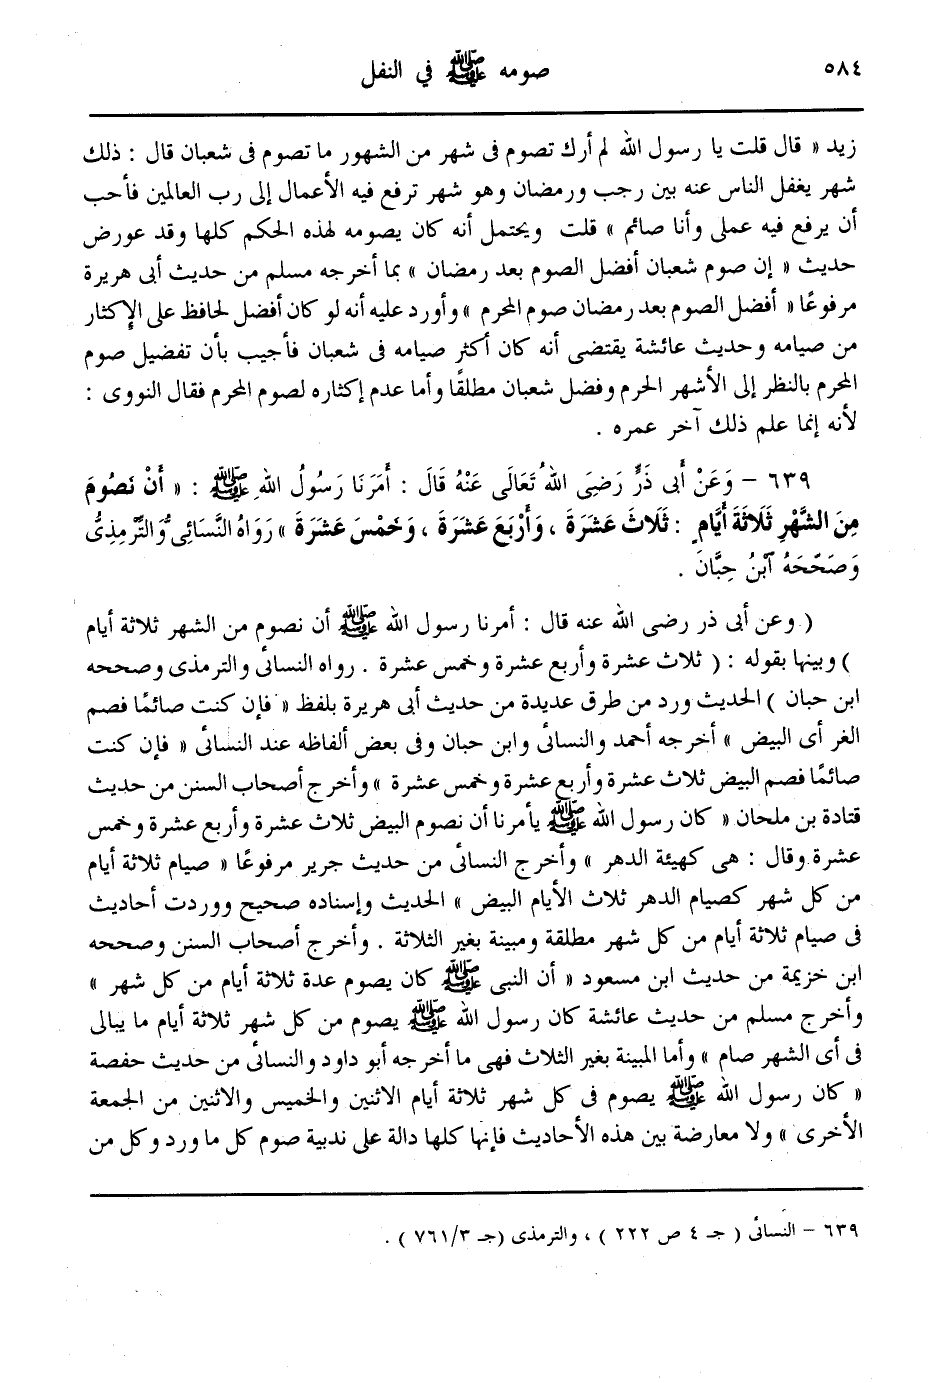 ٥٨٤
صومه ﷺ في النفل
زيد « قال قلت يا رسول الله لم أرك تصوم فى شهر من الشهور ما تصوم فى شعبان قال : ذلك
شهر يغفل الناس عنه بين رجب ورمضان وهو شهر ترفع فيه الأعمال إلى رب العالمين فأحب
أن يرفع فيه عملى وأنا صائم » قلت ويحتمل أنه كان يصومه لهذه الحكم كلها وقد عورض
حديث « إن صوم شعبان أفضل الصوم بعد رمضان » بما أخرجه مسلم من حديث أبى هريرة
مرفوعًا « أفضل الصوم بعد رمضان صوم المحرم » وأورد عليه أنه لو كان أفضل لحافظ على الإكثار
من صيامه وحديث عائشة يقتضى أنه كان أكثر صيامه فى شعبان فأجيب بأن تفضيل صوم
المحرم بالنظر إلى الأشهر الحرم وفضل شعبان مطلقًا وأما عدم إكثاره لصوم المحرم فقال النووى :
لأنه إنما علم ذلك آخر عمره .
٦٣٩ – وَعَنْ أَبى ذَرٍّ رَضِىَ اللهُ تَعَالَى عَنْهُ قَالَ : أَمَرَنَا رَسُولُ اللهِ ﷺ : « أَنْ نَصُومَ
مِنَ الشَّهْرِ ثَلَاثَةَ أَيَّامٍ : ثَلَاثَ عَشَرَةَ ، وَأَرْبَعَ عَشَرَةَ ، وَخَمْسَ عَشَرَةَ » رَوَاهُ النَّسَائِىُّ وَالتِّرْمِذِىُّ
وَصَحَّحَهُ آبْنُ حِبَّانَ .
( وعن أبى ذر رضى الله عنه قال : أمرنا رسول الله ﷺ أن نصوم من الشهر ثلاثة أيام
) وبينها بقوله : ( ثلاث عشرة وأربع عشرة وخمس عشرة . رواه النسائى والترمذى وصححه
ابن حبان ) الحديث ورد من طرق عديدة من حديث أبى هريرة بلفظ « فإن كنت صائمًا فصم
الغر أى البيض » أخرجه أحمد والنسائى وابن حبان وفى بعض ألفاظه عند النسائى « فإن كنت
صائمًا فصم البيض ثلاث عشرة وأربع عشرة وخمس عشرة » وأخرج أصحاب السنن من حديث
قتادة بن ملحان « كان رسول الله ﷺ يأمرنا أن نصوم البيض ثلاث عشرة وأربع عشرة وخمس
عشرة وقال : هى كهيئة الدهر » وأخرج النسائى من حديث جرير مرفوعًا « صيام ثلاثة أيام
من كل شهر كصيام الدهر ثلاث الأيام البيض » الحديث وإسناده صحيح ووردت أحاديث
فى صيام ثلاثة أيام من كل شهر مطلقة ومبينة بغير الثلاثة . وأخرج أصحاب السنن وصححه
ابن خزيمة من حديث ابن مسعود « أن النبى ﷺ كان يصوم عدة ثلاثة أيام من كل شهر »
وأخرج مسلم من حديث عائشة كان رسول الله ﷺ يصوم من كل شهر ثلاثة أيام ما يبالى
فى أى الشهر صام » وأما المبينة بغير الثلاث فهى ما أخرجه أبو داود والنسائى من حديث حفصة
« كان رسول الله ﷺ يصوم فى كل شهر ثلاثة أيام الاثنين والخميس والاثنين من الجمعة
الأخرى » ولا معارضة بين هذه الأحاديث فإنها كلها دالة على ندبية صوم كل ما ورد وكل من
٦٣٩ – النسائى ( جـ ٤ ص ٢٢٢ ) ، والترمذى (جـ ٧٦١/٣ ) .